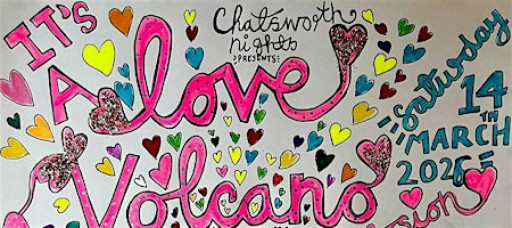 Chatsworth
nights
PRESENTS:
IT'S
A love
Volcano
Saturday
14TH
MARCH
2026